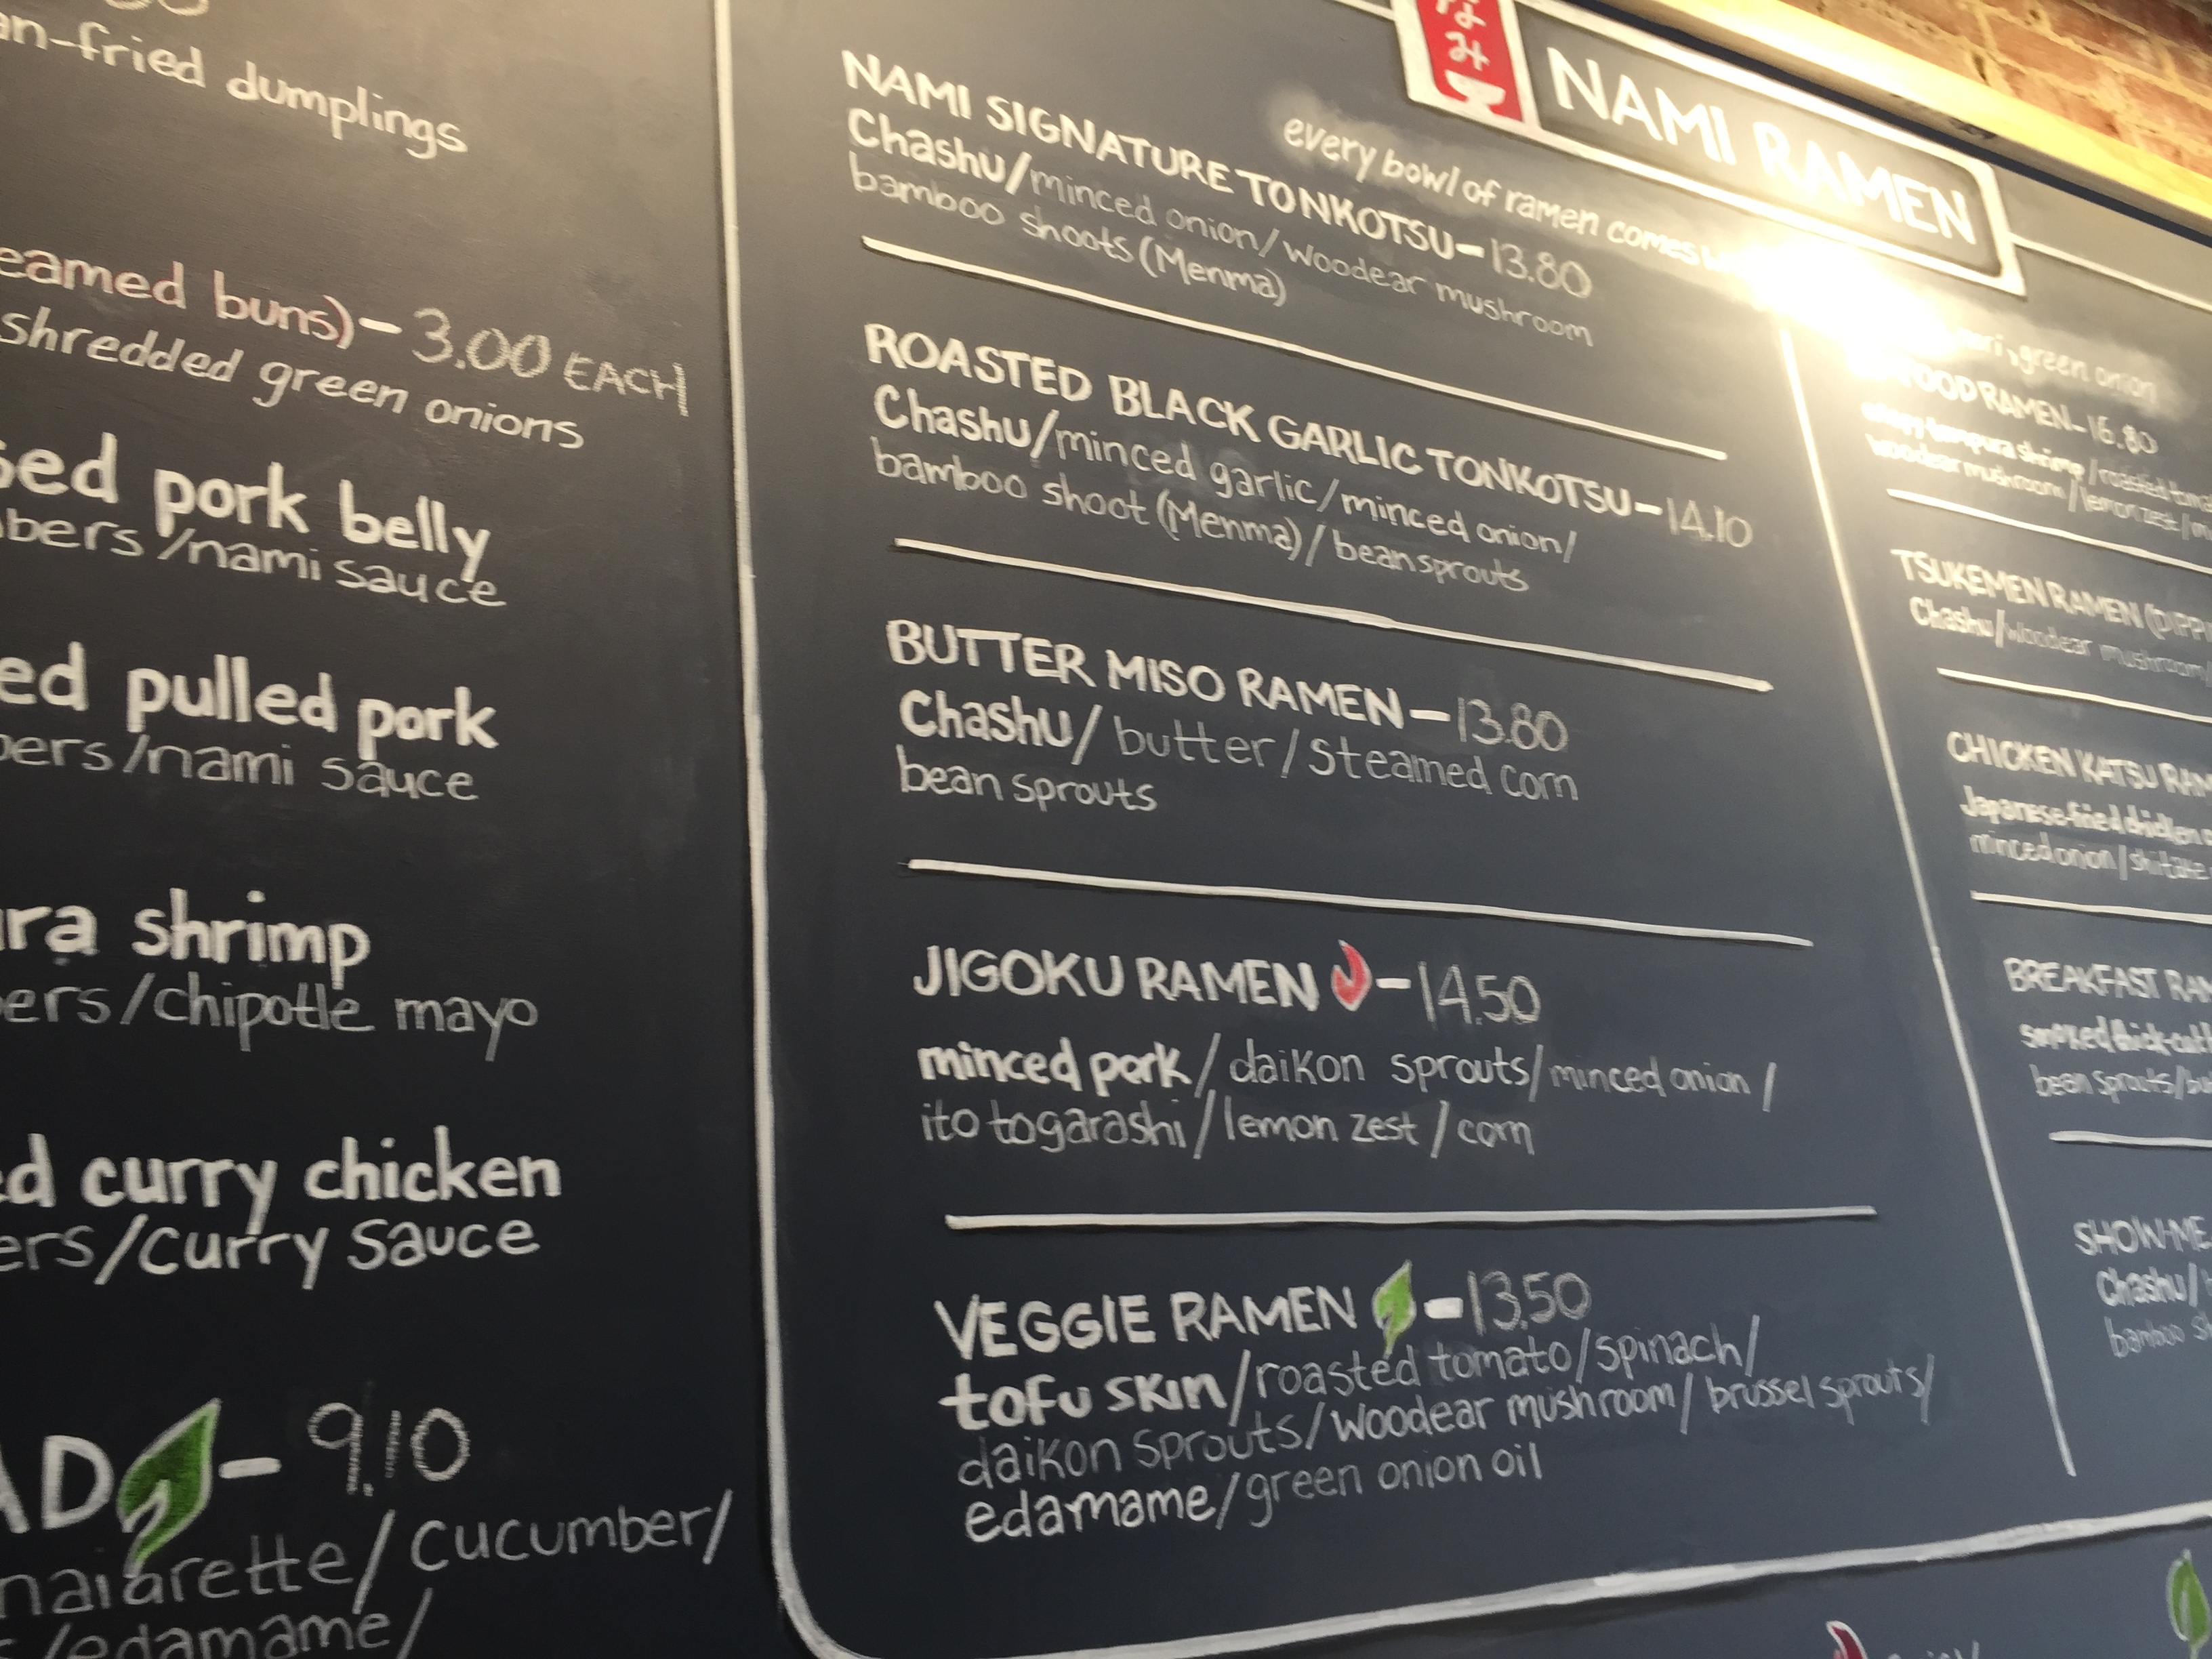 dumplings
buns)-3.00 EACH
shredded green onions
pork belly
/nami sauce
pulled pork
/nami sauce
shrimp
/chipotle mayo
curry chicken
/curry sauce
-9.10
/cucumber/
/edamame/
なみ
NAMI RAMEN
every bowl of ramen comes
green onion
NAMI SIGNATURE TONKOTSU-13.80
Chashu/minced onion/woodear mushroom
bamboo shoots (Menma)
ROASTED BLACK GARLIC TONKOTSU-14.10
Chashu/minced garlic/minced onion/
bamboo shoot (Menma)/bean sprouts
BUTTER MISO RAMEN-13.80
Chashu/butter/steamed corn
bean sprouts
JIGOKU RAMEN -14.50
minced pork/daikon sprouts/minced onion/
ito togarashi/lemon zest/corn
VEGGIE RAMEN -13.50
tofu skin/roasted tomato/spinach/
daikon sprouts/woodear mushroom/brussel sprouts/
edamame/green onion oil
RAMEN-16.80
shrimp/roasted
woodear mushroom/lemon zest/
TSUKEMEN RAMEN
Chashu/woodear mushroom/
CHICKEN KATSU
Japanese-fried chicken
minced onion/shiitake
BREAKFAST
smoked thick-cut
bean sprouts/
SHOW-ME
Chashu/
bamboo